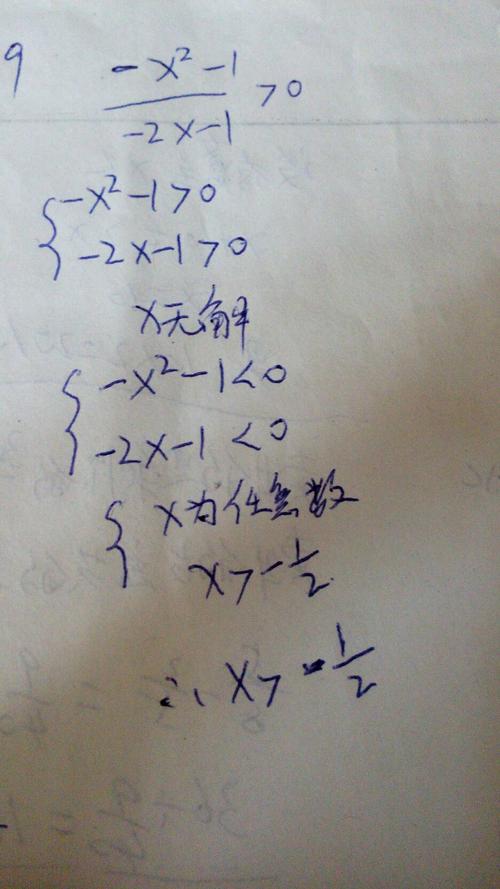 9
-x²-1
————— >0
-2x-1
{-x²-1>0
-2x-1>0
x无解
{-x²-1<0
-2x-1<0
{x为任意数
x>-1/2
∴x>-1/2